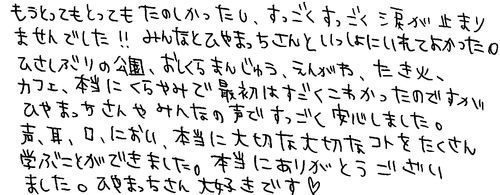 もうとってもとってもたのしかったし、すっごくすっごく涙が止まり
ませんでした!! みんなとひやまっちさんといっしょにいれてよかった。
ひさしぶりの公園、おしくらまんじゅう、えんがわ、たき火、
カフェ、本当にくらやみで最初はすごくこわかったのですが
ひやまっちさんやみんなの声ですっごく安心しました。
声、耳、口、におい、本当に大切な大切なコトをたくさん
学ぶことができました。本当にありがとうござい
ました。ひやまっちさん大好きです♡